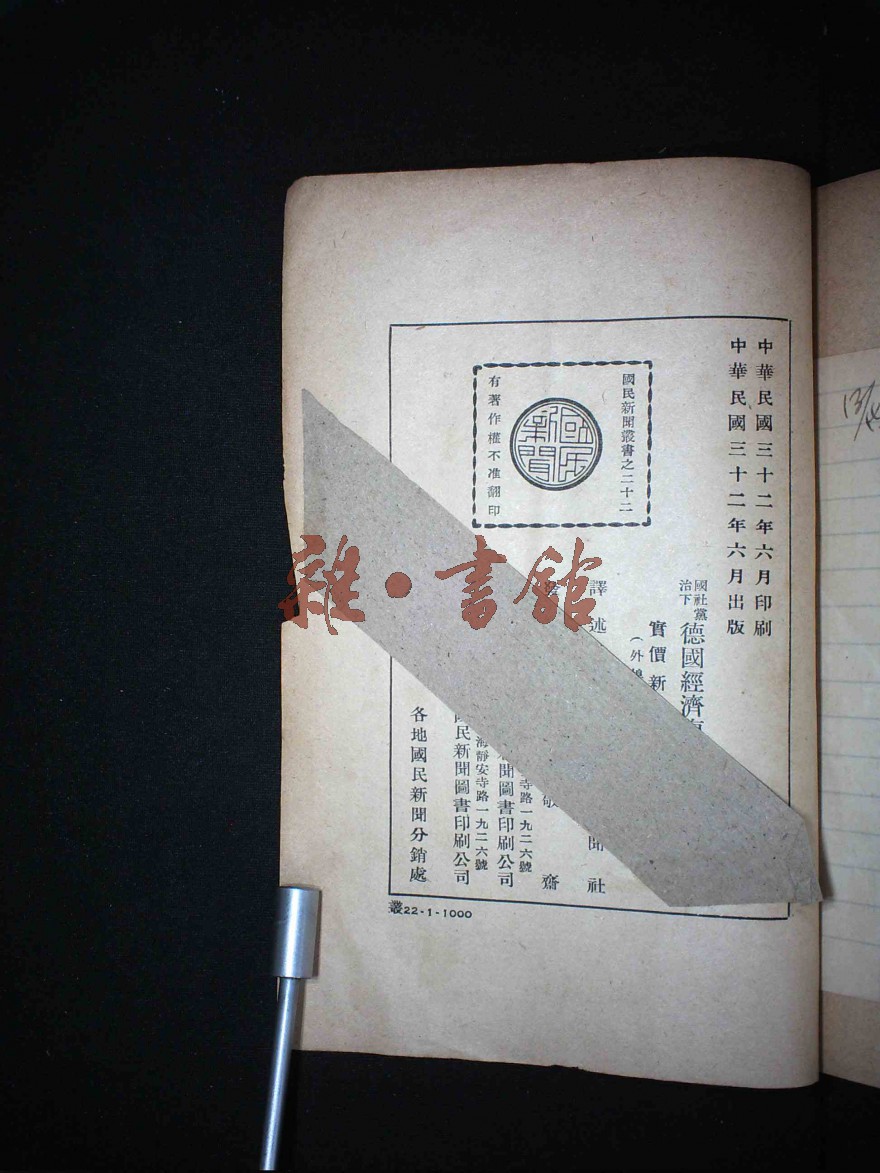 中華民國三十二年六月印刷
中華民國三十二年六月出版
國民新聞叢書之二十二
國民新聞
有著作權不准翻印
國社黨治下
德國經濟
實價新
（外埠
譯述
聞社
敬齋
寺路一九二六號
聞圖書印刷公司
海靜安寺路一九二六號
民新聞圖書印刷公司
各地國民新聞分銷處
叢22-1-1000
雜·書館